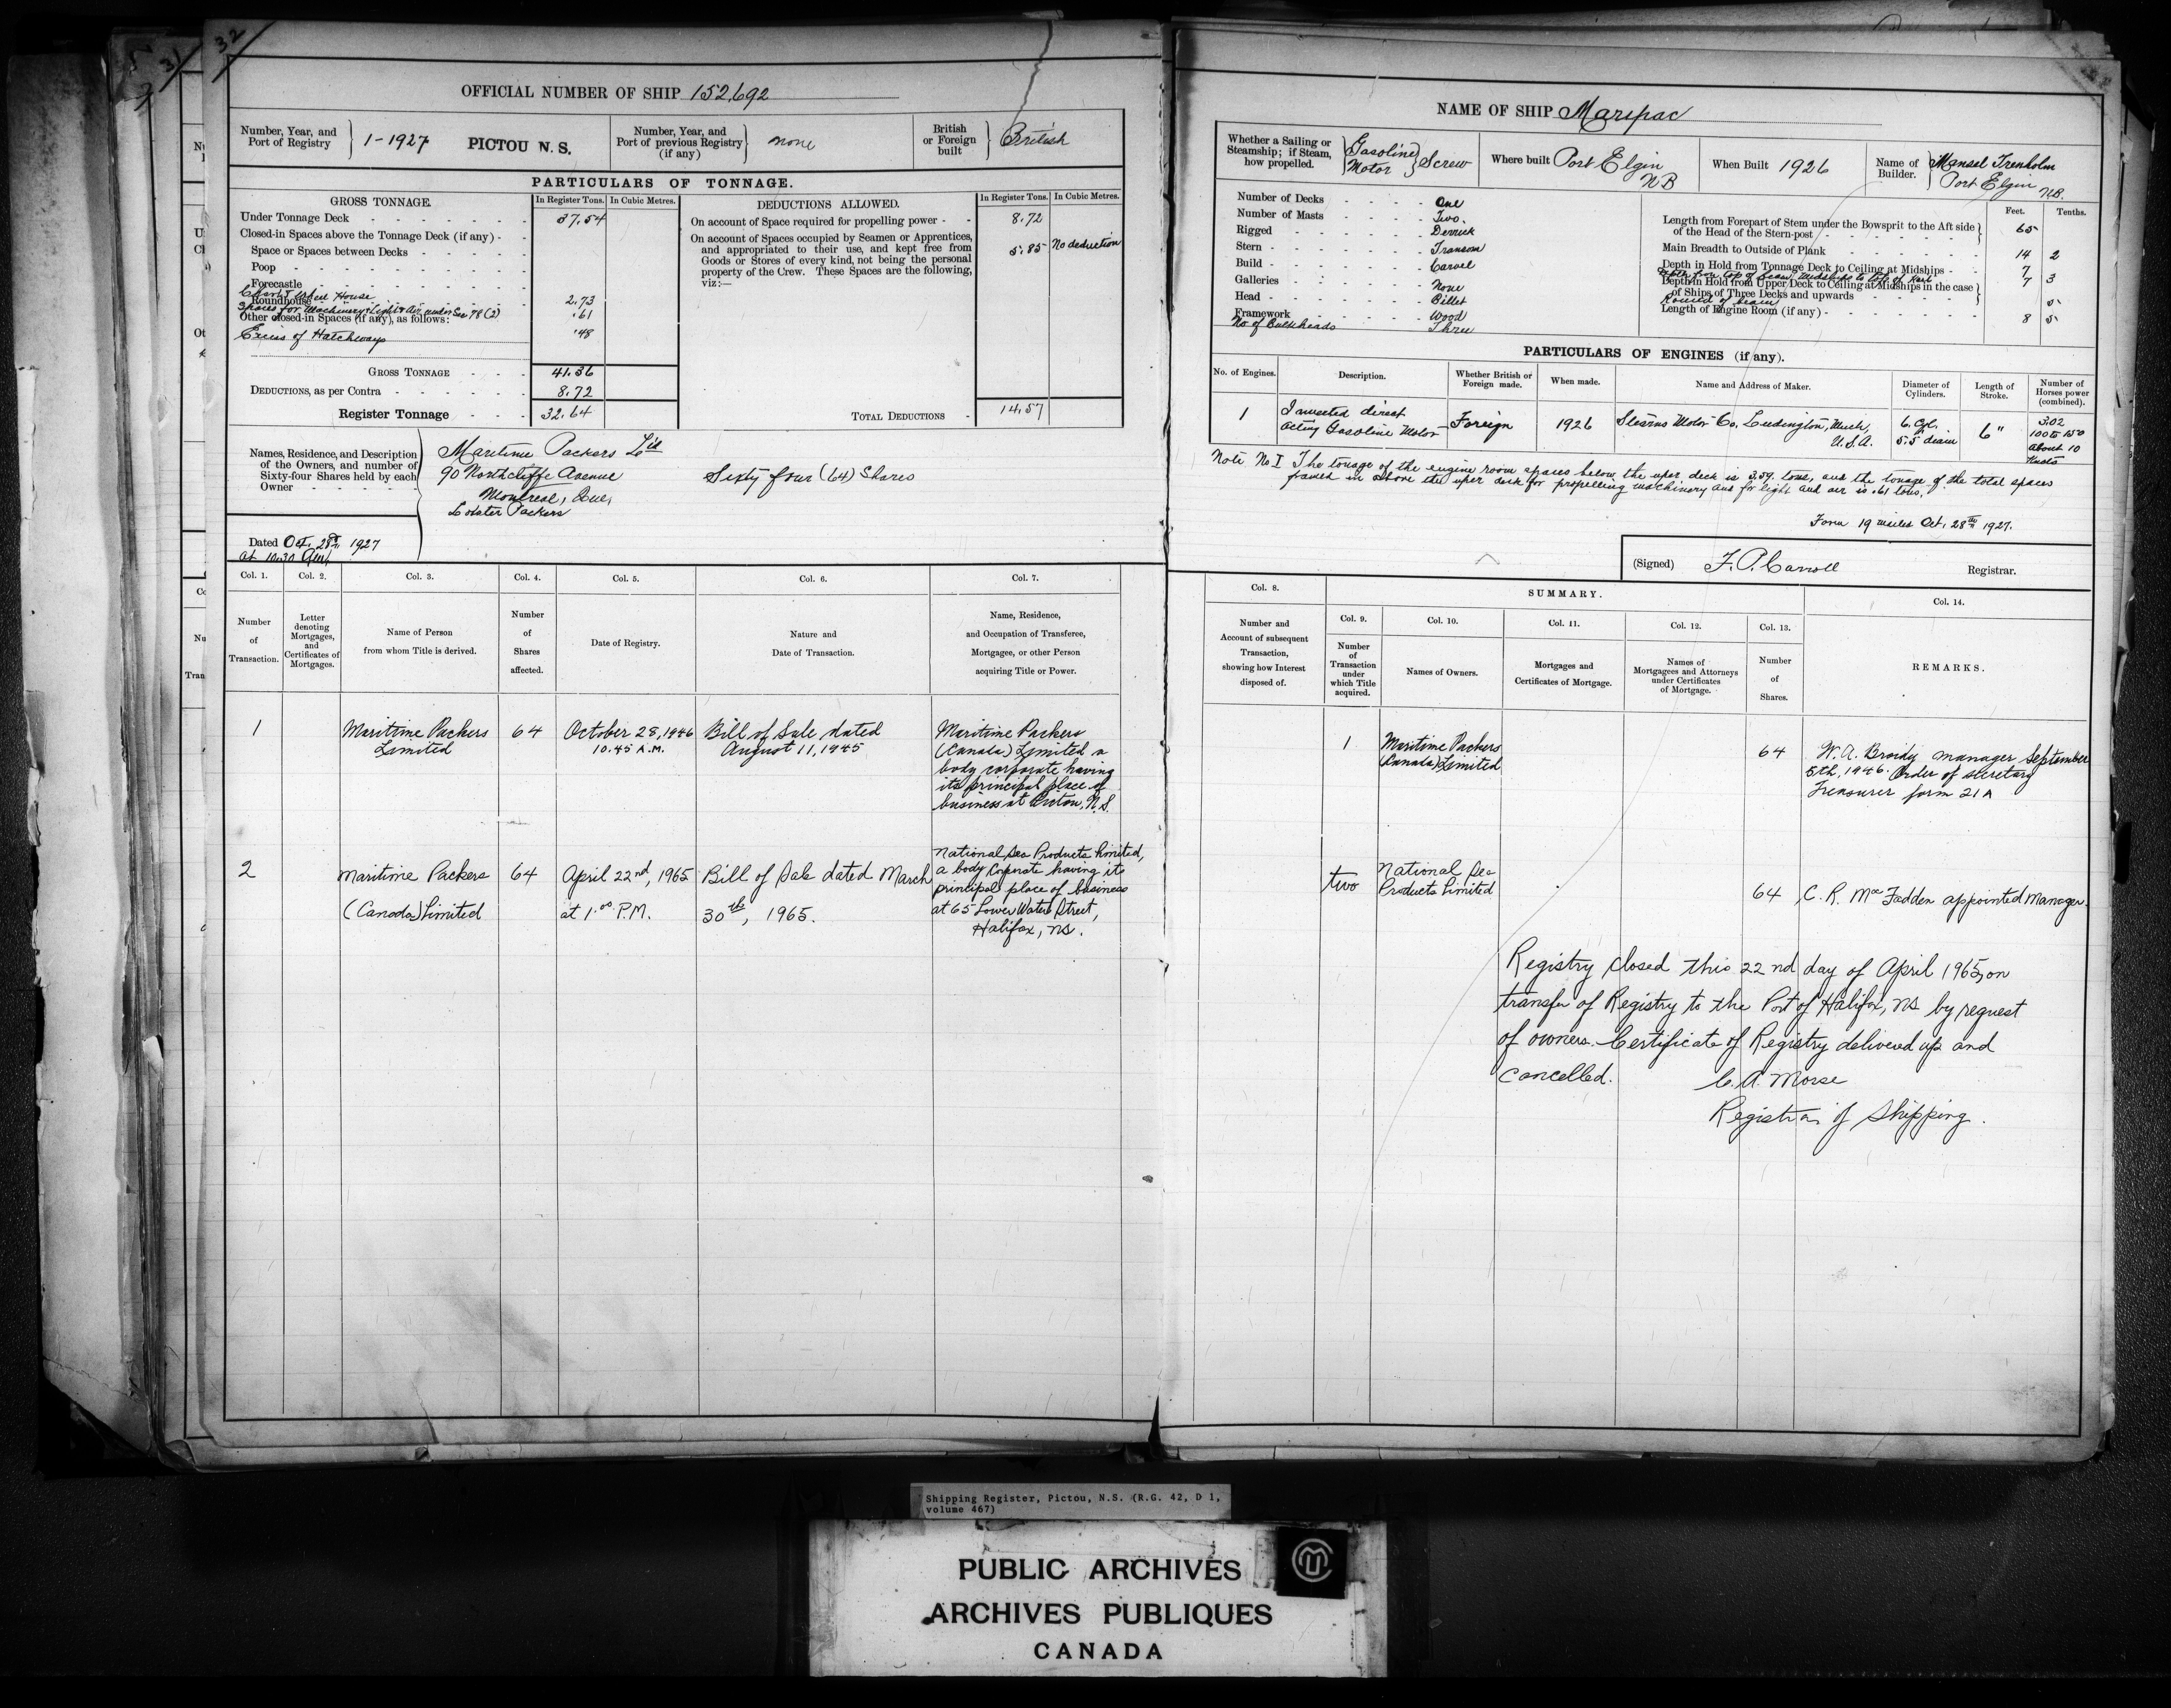 32
31
OFFICIAL NUMBER OF SHIP 152,692
Number, Year, and Port of Registry } 1-1927 PICTOU N.S.
Number, Year, and Port of previous Registry (if any) } none
British or Foreign built } British
PARTICULARS OF TONNAGE.
GROSS TONNAGE. In Register Tons. In Cubic Metres.
Under Tonnage Deck 37.54
Closed-in Spaces above the Tonnage Deck (if any)
Space or Spaces between Decks
Poop
Forecastle
Chart & Wheel House
Roundhouse 2.73
Spaces for Machinery & Light & Air under Sec 78 (2) .61
Other closed-in Spaces (if any), as follows:
Excess of Hatchways .48
GROSS TONNAGE 41.36
DEDUCTIONS, as per Contra 8.72
Register Tonnage 32.64
DEDUCTIONS ALLOWED. In Register Tons. In Cubic Metres.
On account of Space required for propelling power 8.72
On account of Spaces occupied by Seamen or Apprentices, and appropriated to their use, and kept free from Goods or Stores of every kind, not being the personal property of the Crew. These Spaces are the following, viz:— 5.85 No deduction
TOTAL DEDUCTIONS 14.57
Names, Residence, and Description of the Owners, and number of Sixty-four Shares held by each Owner
Maritime Packers Ltd
90 Northcliffe Avenue
Montreal, Que,
Lobster Packers
Sixty four (64) Shares
Dated Oct. 28th 1927
at 10.30 Am,
Col. 1. Col. 2. Col. 3. Col. 4. Col. 5. Col. 6. Col. 7.
Number of Transaction.
Letter denoting Mortgages, and Certificates of Mortgages.
Name of Person from whom Title is derived.
Number of Shares affected.
Date of Registry.
Nature and Date of Transaction.
Name, Residence, and Occupation of Transferee, Mortgagee, or other Person acquiring Title or Power.
1
Maritime Packers
Limited
64
October 28, 1946
10.45 A.M.
Bill of Sale dated
August 11, 1945
Maritime Packers
(Canada) Limited a
body corporate having
its principal place of
business at Pictou, N.S.
2
Maritime Packers
(Canada) Limited
64
April 22nd, 1965
at 1.00 P.M.
Bill of Sale dated March
30th, 1965.
National Sea Products Limited,
a body Corporate having its
principal place of business
at 65 Lower Water Street,
Halifax, NS.
NAME OF SHIP Maripac
Whether a Sailing or Steamship; if Steam, how propelled. { Gasoline Motor } Screw
Where built Port Elgin NB
When Built 1926
Name of Builder. { Mansel Trenholm
Port Elgin N.B.
Number of Decks One
Number of Masts Two.
Rigged Derrick
Stern Transom
Build Carvel
Galleries None
Head Billet
Framework Wood
No of Bulkheads Three
Feet. Tenths.
Length from Forepart of Stem under the Bowsprit to the Aft side of the Head of the Stern-post 65
Main Breadth to Outside of Plank 14 2
Depth in Hold from Tonnage Deck to Ceiling at Midships 7
Depth from top of beam Midships to top of keel 7 3
Depth in Hold from Upper Deck to Ceiling at Midships in the case of Ships of Three Decks and upwards
Round of beam 5
Length of Engine Room (if any) 8 5
PARTICULARS OF ENGINES (if any).
No. of Engines. Description. Whether British or Foreign made. When made. Name and Address of Maker. Diameter of Cylinders. Length of Stroke. Number of Horses power (combined).
1
Inverted direct
acting Gasoline Motor
Foreign
1926
Stearns Motor Co, Ludington, Mich,
U.S.A.
6 Cyl.
5.5" diam
6"
3.02
100 to 150
about 10
Knots
Note No I The tonage of the engine room spaces below the uper deck is 3.59. tons, and the tonage of the total spaces
framed in above the uper deck for propelling machinery and for light and air is .61 tons.
Form 19 Oct. 28th 1927.
(Signed) F. P. Carroll Registrar.
Col. 8. SUMMARY. Col. 14.
Col. 9. Col. 10. Col. 11. Col. 12. Col. 13.
Number and Account of subsequent Transaction, showing how Interest disposed of.
Number of Transaction under which Title acquired.
Names of Owners.
Mortgages and Certificates of Mortgage.
Names of Mortgagees and Attorneys under Certificates of Mortgage.
Number of Shares.
REMARKS.
1
Maritime Packers
(Canada) Limited
64
W. A. Broidy manager September
5th, 1946. Order of secretary
Treasurer form 21A
two
National Sea
Products Limited
64
C. R. MacFadden appointed Manager.
Registry closed this 22nd day of April 1965, on
transfer of Registry to the Port of Halifax, NS by request
of owners. Certificate of Registry delivered up and
cancelled. C. A. Morse
Registrar of Shipping.
Shipping Register, Pictou, N.S. (R.G. 42, D 1,
volume 467)
PUBLIC ARCHIVES
ARCHIVES PUBLIQUES
CANADA